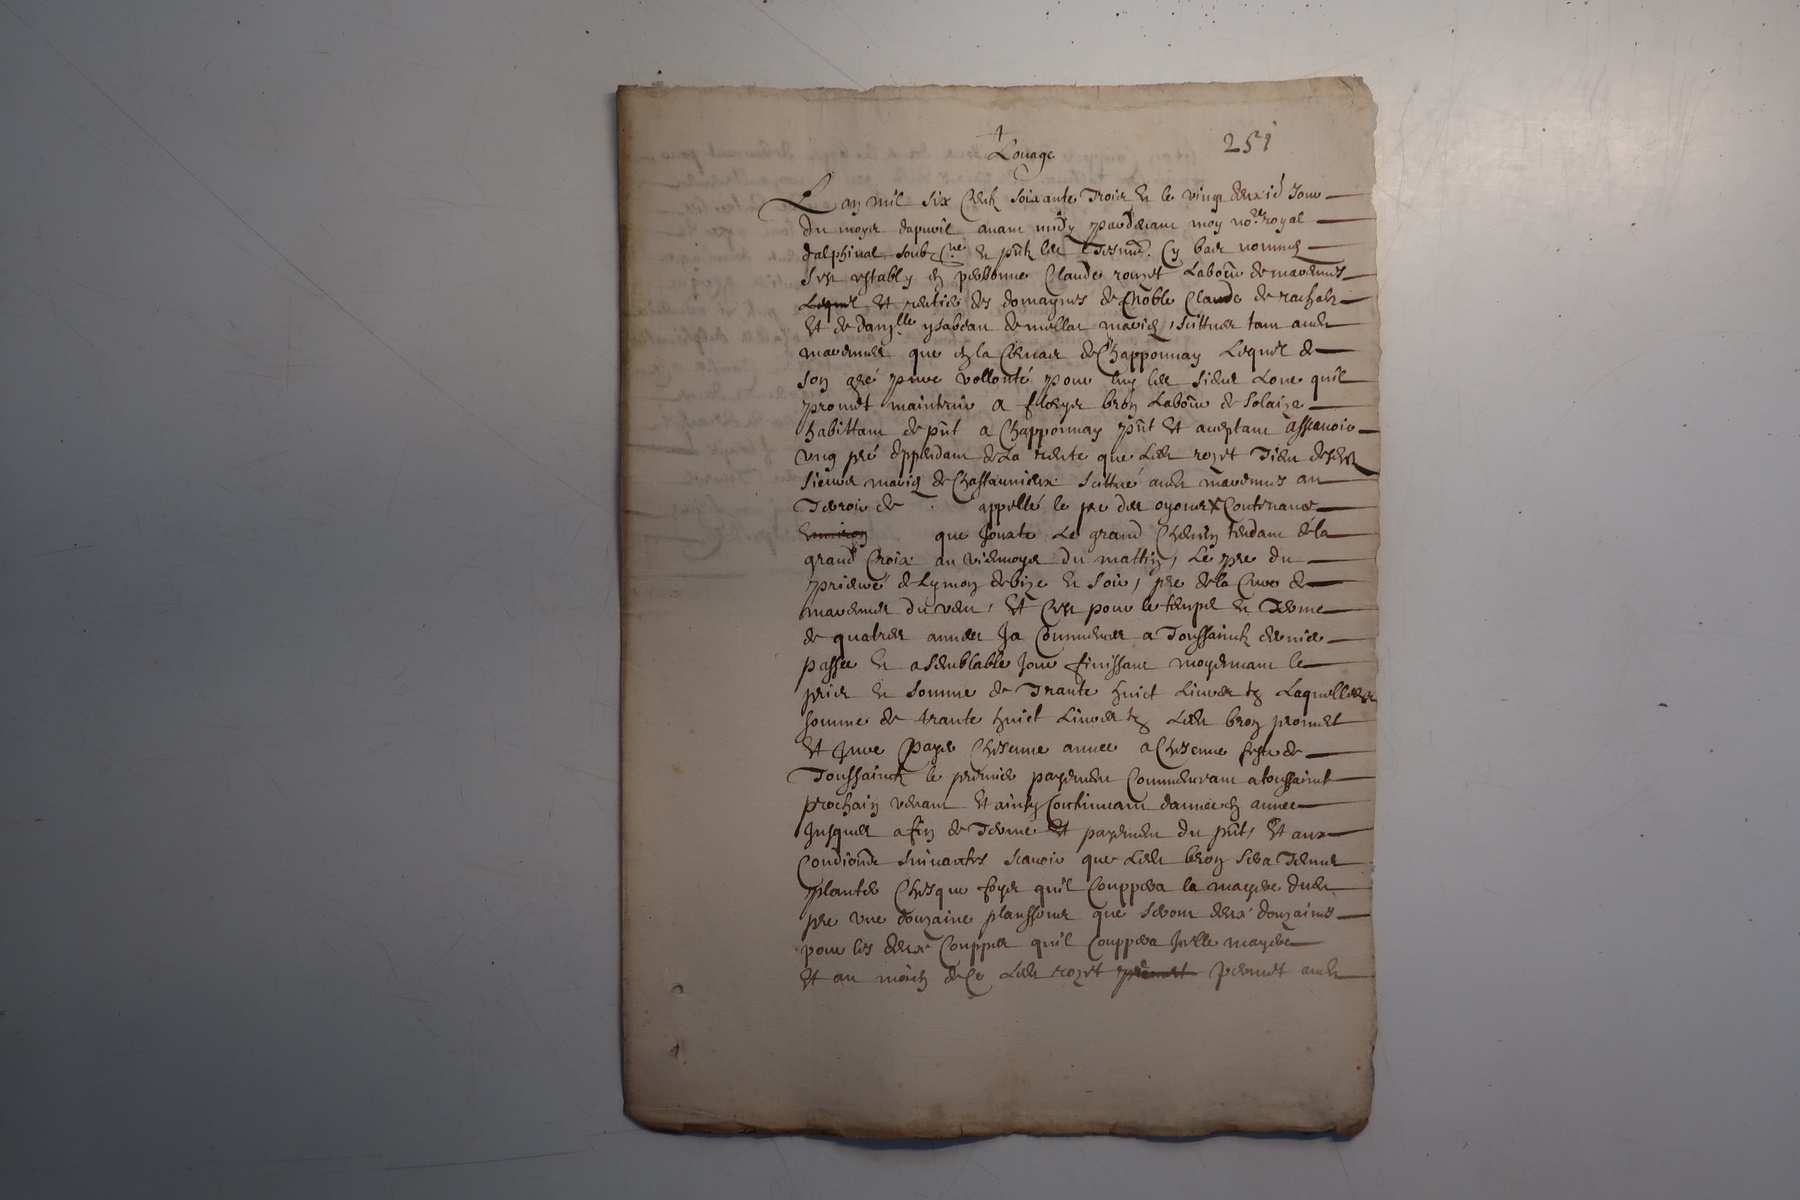 251
Louage
L an mil six centz soixante trois et le vingt deuxie jour
du moys dapvril avant midy pardevant moy no.re royal
dalphinal soubz.ne et pnts les tesm . cy bas nommes
sest estably en personne Claude rozet Labour de marennes
Lequel et rentier des domaynes de noble Claude de rachais
et de dam.lle ysabeau de mellat maries scittues tant audt
marennes que en la de Chapponnay Lequel de
son gré pure vollonté pour luy les siens Loue quil
promet maintenir a bron Labour de Solaize
habittant de pnt a Chapponnay pnt et aceptant assavoir
ung pré deppendant de La rente que Ledt rozet tient desdt
sieurs maries de Chassaunieux scittué audt marennes au
Terroir de appellé le pre des oyones Contenant
Environ que Jouxte Le grand Chemin tendant de la
grand Croix au viennoys du mattin, Le pre du
prieuré de Lymon de bize et soir, pre de la Cure de
marennes du vent, Et C'est pour le temps et Terme
de quatres annees Ja Commences a Toussainctz dernier
passee et a semblable Jour finissant moyennant le
pries et somme de Trante huict Livres tz Laquelle
somme de trante huict Livres tz Ledt bron promet
et Jure payer Chscune annee a Chscune feste de
Toussainctz le premier payement Commencant a toussainct
prochain venant et ainsy Continuant dannee en annee
Jusques a fin de Terme et payement du pnt, Et aux
Condions suivantes scavoir que Ledt bron sera Tenus
planter Chsque foys quil Couppera la dudt
pre une douzaine planssons que seront deux douzaines
pour les deux Couppes quil Couppera Jcelle
et au moien de Ce Ledt rozet promet permet audt